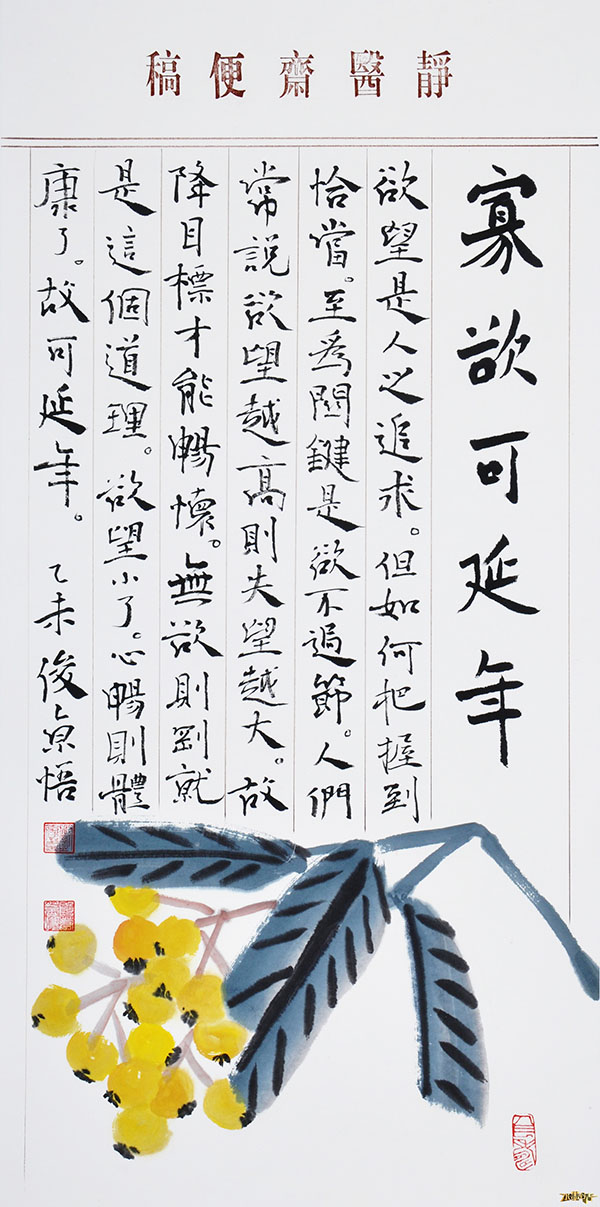 靜醫齋便稿
寡欲可延年
欲望是人之追求。但如何把握到
恰當。至爲關鍵是欲不過節。人們
常說欲望越高則失望越大。故
降目標才能暢懷。無欲則剛就
是這個道理。欲望小了。心暢則體
康了。故可延年。
乙未俊京悟